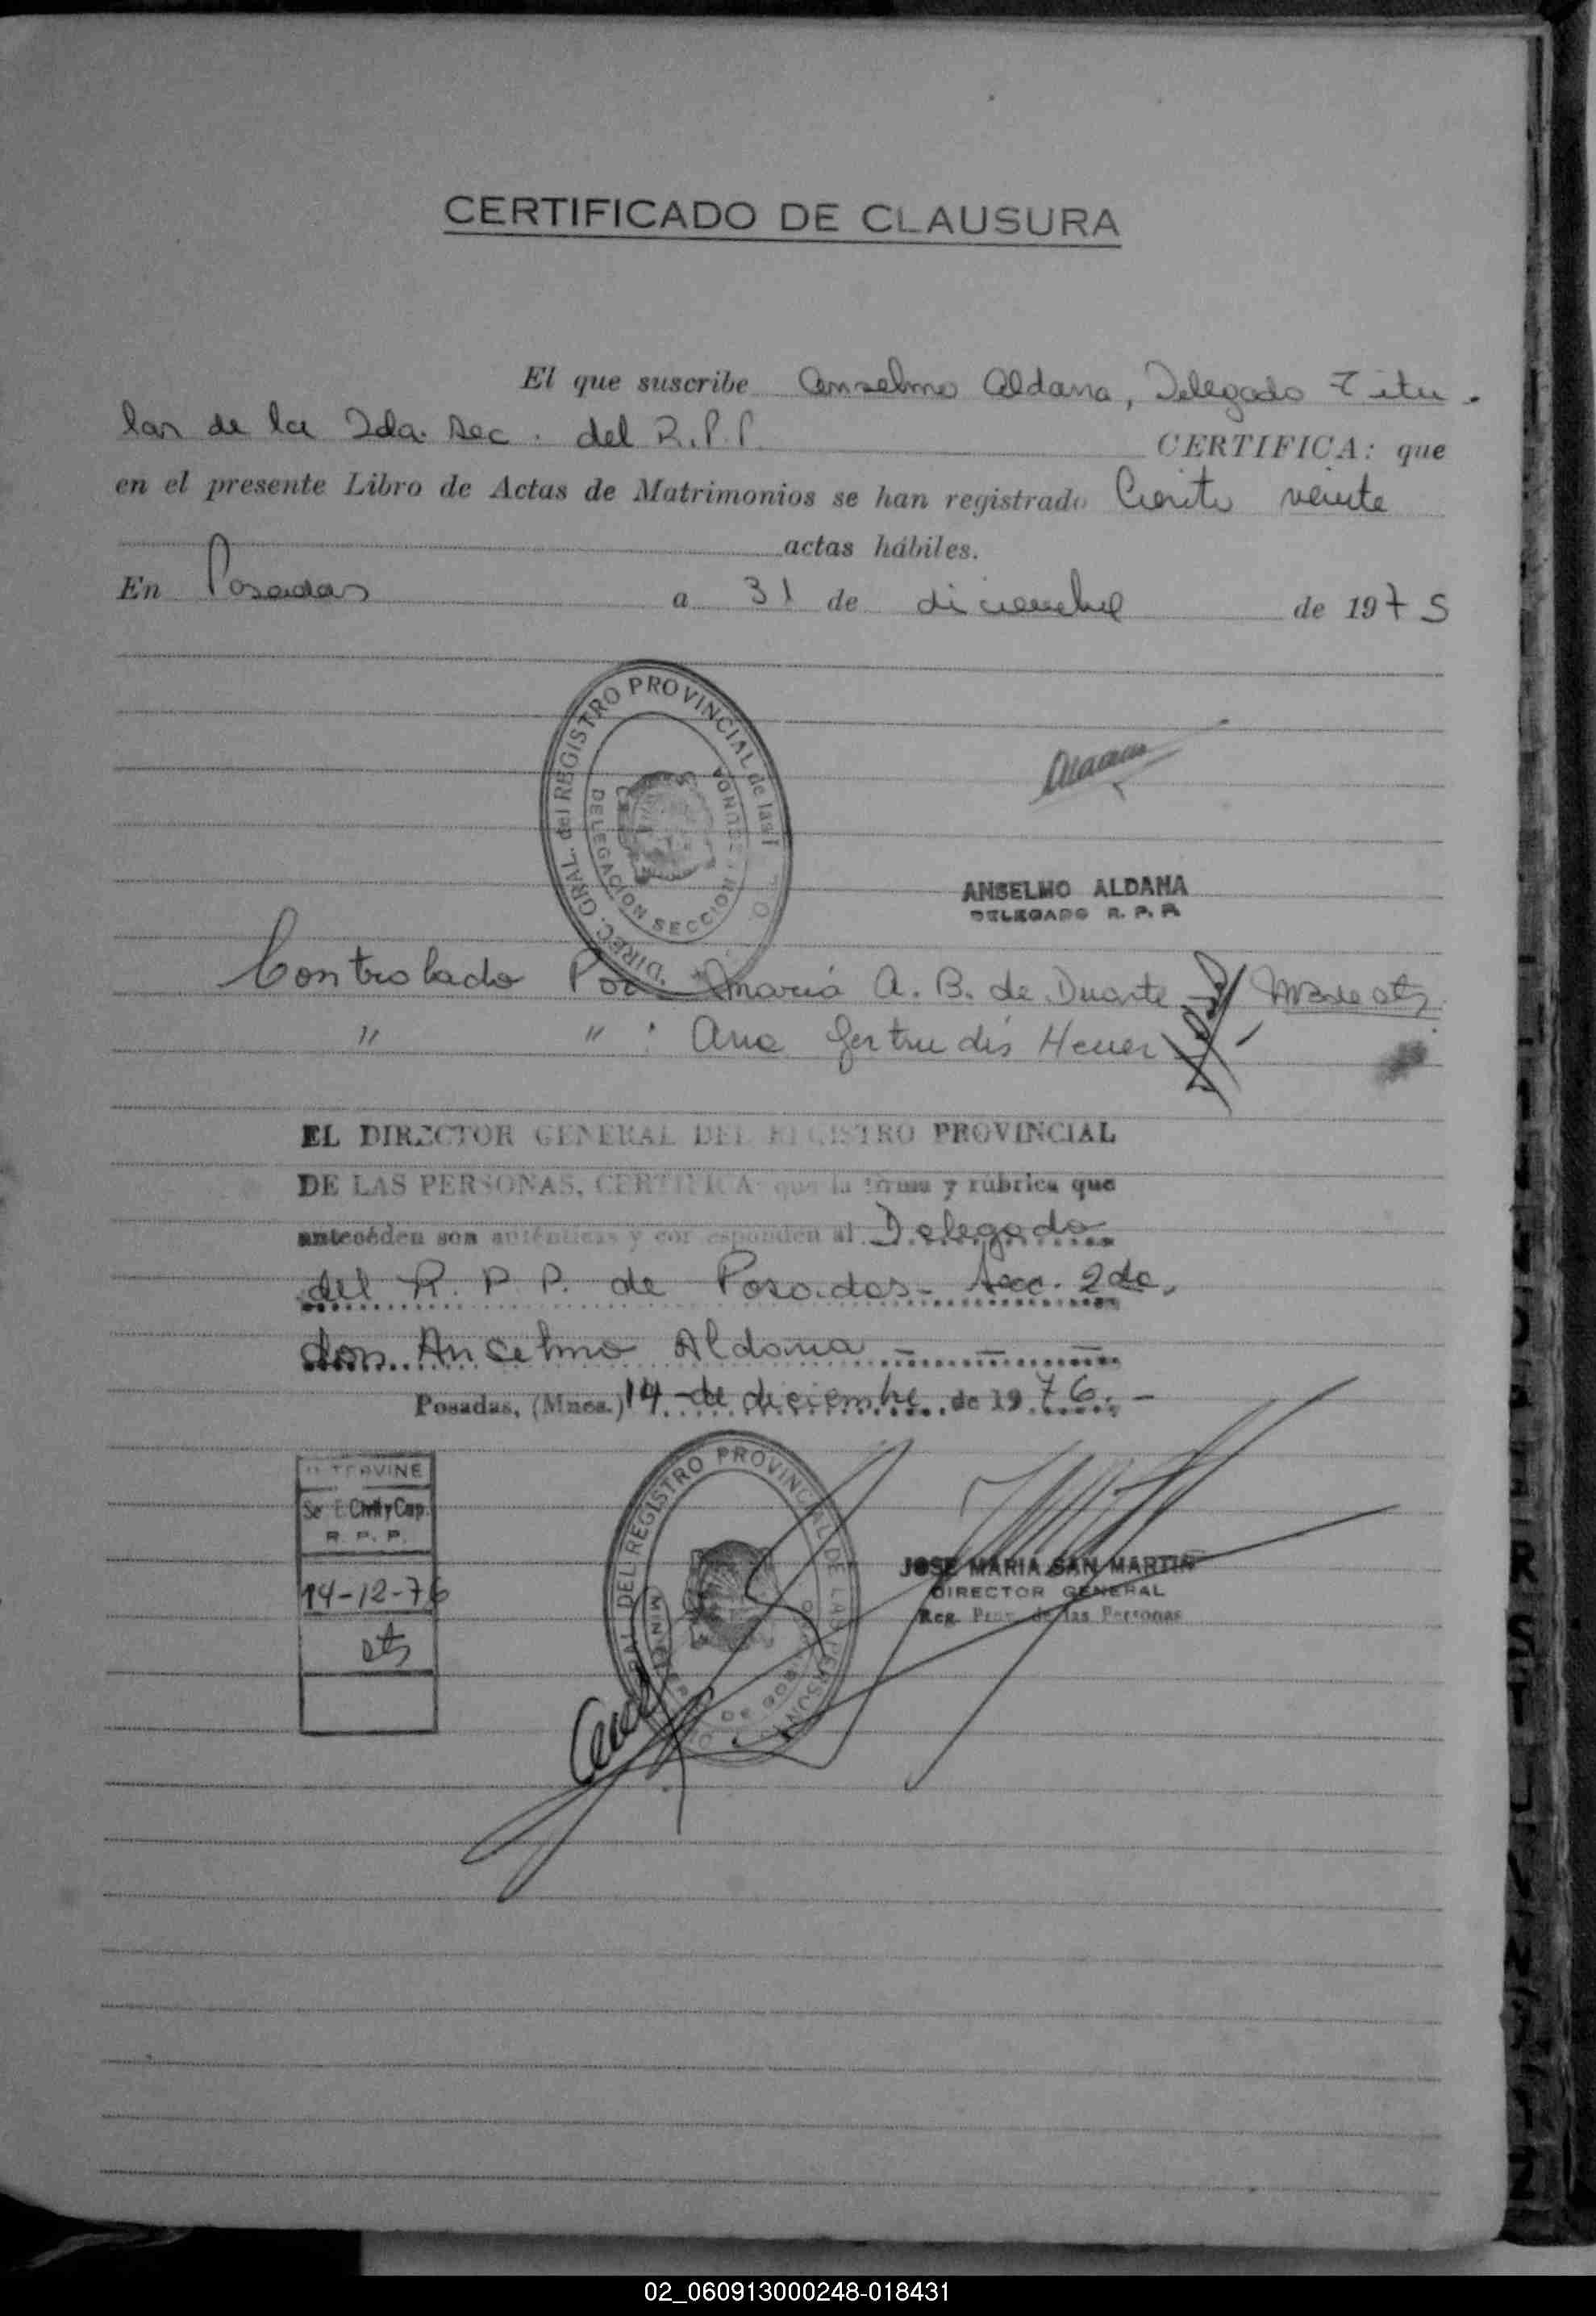 CERTIFICADO DE CLAUSURA
El que suscribe Anselmo Aldana, Delegado Titu-
lar de la 2da. Sec. del R.P.P. CERTIFICA: que
en el presente Libro de Actas de Matrimonios se han registrado Ciento veinte
actas hábiles.
En Posadas a 31 de diciembre de 1975
DIREC. GRAL. del REGISTRO PROVINCIAL de las
DELEGACION SECCION
ANSELMO ALDANA
DELEGADO R. P. P.
Controlado Por María A. B. de Duarte
" " : Ana Gertrudis Heuer
EL DIRECTOR GENERAL DEL REGISTRO PROVINCIAL
DE LAS PERSONAS, CERTIFICA: que la firma y rúbrica que
anteceden son auténticas y corresponden al Delegado
del R. P. P. de Posadas - Secc. 2da.
don Anselmo Aldana - - -
Posadas, (Mnes.) 14 de diciembre de 1976. -
INTERVINE
Se E. Civil y Cap.
R. P. P.
14-12-76
DEL REGISTRO PROVINCIAL DE LAS PERSONAS
JOSE MARIA SAN MARTIN
DIRECTOR GENERAL
Reg. Prov. de las Personas
02_060913000248-018431